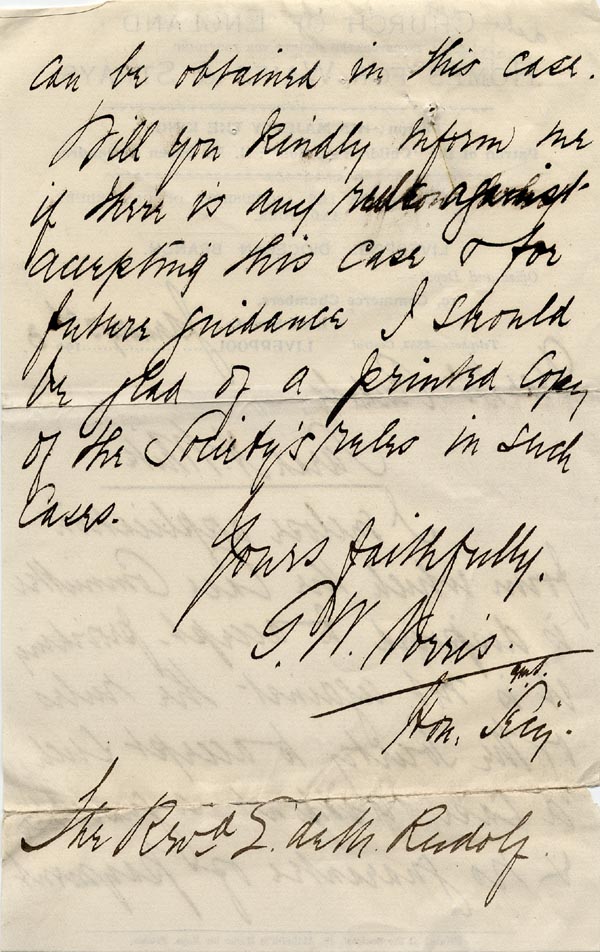 can be obtained in this case.
Will you kindly inform me
if there is any rule against
accepting this case & for
future guidance I should
be glad of a printed copy
of the Society's rules in such
Cases.
Yours faithfully.
G. W. Norris.
Hon. Secy.
The Revd E. de M. Rudolf.